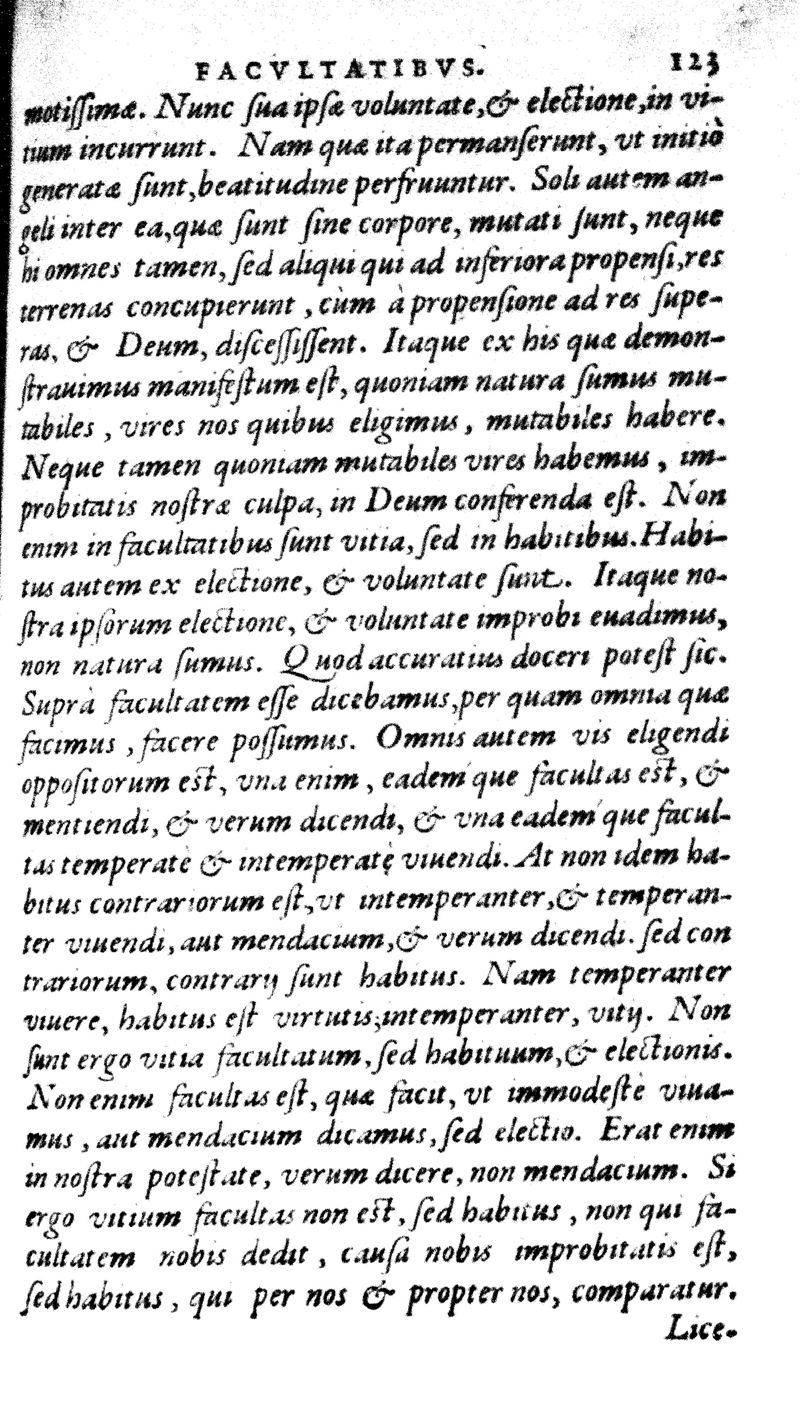 FACVLTATIBVS. 123
motiſſimæ. Nunc ſua ipſæ voluntate,& electione,in vi-
tium incurrunt. Nam quæ ita permanſerunt, vt initiò
generatæ ſunt,beatitudine perfruuntur. Soli autem an-
geli inter ea,quæ ſunt ſine corpore, mutati ſunt, neque
hi omnes tamen, ſed aliqui qui ad inferiora propenſi,res
terrenas concupierunt , cùm à propenſione ad res ſupe-
ras, & Deum, diſceſſiſſent. Itaque ex his quæ demon-
ſtrauimus manifeſtum eſt, quoniam natura ſumus mu-
tabiles , vires nos quibus eligimus , mutabiles habere.
Neque tamen quoniam mutabiles vires habemus , im-
probitatis noſtræ culpa, in Deum conferenda eſt. Non
enim in facultatibus ſunt vitia, ſed in habitibus.Habi-
tus autem ex electione, & voluntate ſunt. Itaque no-
ſtra ipſorum electione, & voluntate improbi euadimus,
non natura ſumus. Quod accuratius doceri poteſt ſic.
Suprà facultatem eſſe dicebamus,per quam omnia quæ
facimus , facere poſſumus. Omnis autem vis eligendi
oppoſitorum eſt, vna enim , eadem´que facultas eſt, &
mentiendi, & verum dicendi, & vna eadem´que facul-
tas temperatè & intemperatę viuendi. At non idem ha-
bitus contrariorum eſt,vt intemperanter,& temperan-
ter viuendi, aut mendacium,& verum dicendi. ſed con
trariorum, contrarij ſunt habitus. Nam temperanter
viuere, habitus eſt virtutis;intemperanter, vitij. Non
ſunt ergo vitia facultatum, ſed habituum,& electionis.
Non enim facultas eſt, quæ facit, vt immodeſtè viua-
mus , aut mendacium dicamus, ſed electio. Erat enim
in noſtra poteſtate, verum dicere, non mendacium. Si
ergo vitium facultas non eſt, ſed habitus , non qui fa-
cultatem nobis dedit , cauſa nobis improbitatis eſt,
ſed habitus , qui per nos & propter nos, comparatur.
Lice-